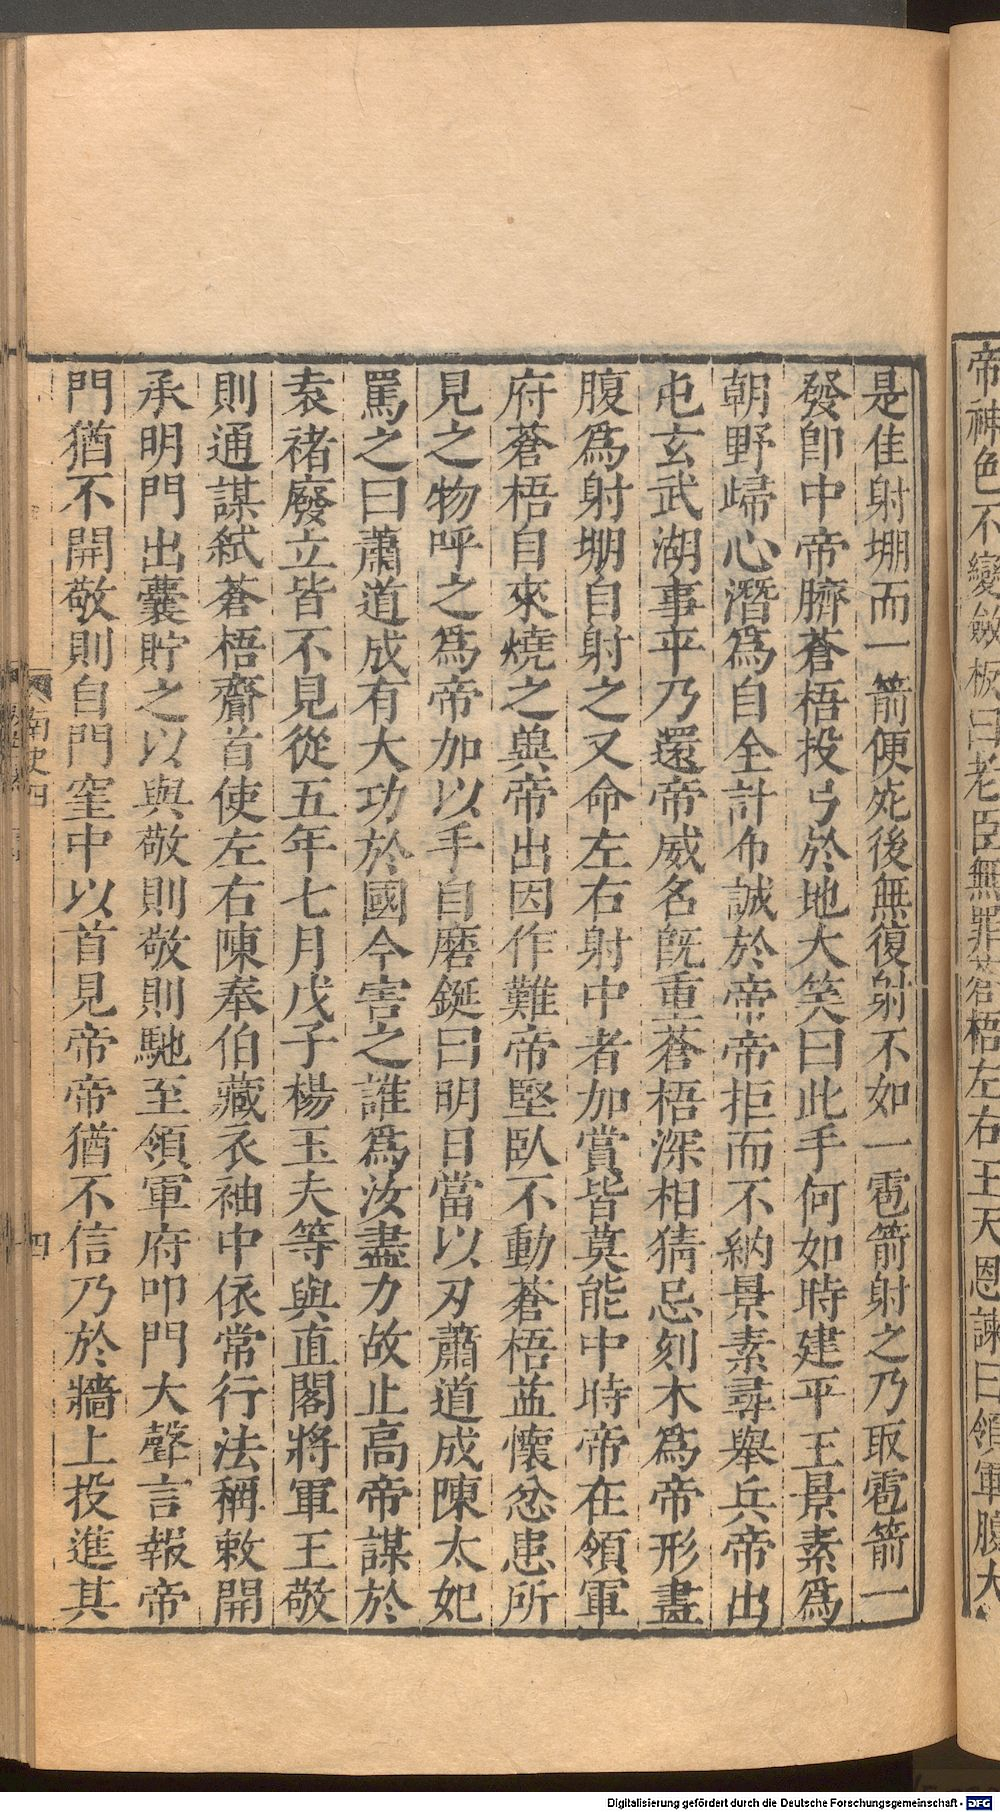 帝神色不變斂板曰老臣無罪蒼梧左右王天恩諫曰領軍腹大
是佳射堋而一箭便死後無復射不如一雹箭射之乃取雹箭一
發卽中帝臍蒼梧投弓於地大笑曰此手何如時建平王景素爲
朝野歸心潛爲自全計布誠於帝帝拒而不納景素尋舉兵帝出
屯玄武湖事平乃還帝威名旣重蒼梧深相猜忌刻木爲帝形畫
腹爲射堋自射之又命左右射中者加賞皆莫能中時帝在領軍
府蒼梧自來燒之兾帝出因作難帝堅臥不動蒼梧益懷忿恚所
見之物呼之爲帝加以手自磨鋋曰明日當以刃蕭道成陳太妃
罵之曰蕭道成有大功於國今害之誰爲汝盡力故止高帝謀於
袁褚廢立皆不見從五年七月戊子楊玉夫等與直閣將軍王敬
則通謀弒蒼梧齎首使左右陳奉伯藏衣袖中依常行法稱敕開
承明門出囊貯之以與敬則敬則馳至領軍府叩門大聲言報帝
門猶不開敬則自門窐中以首見帝帝猶不信乃於牆上投進其
南史四
四
Digitalisierung gefördert durch die Deutsche Forschungsgemeinschaft - DFG